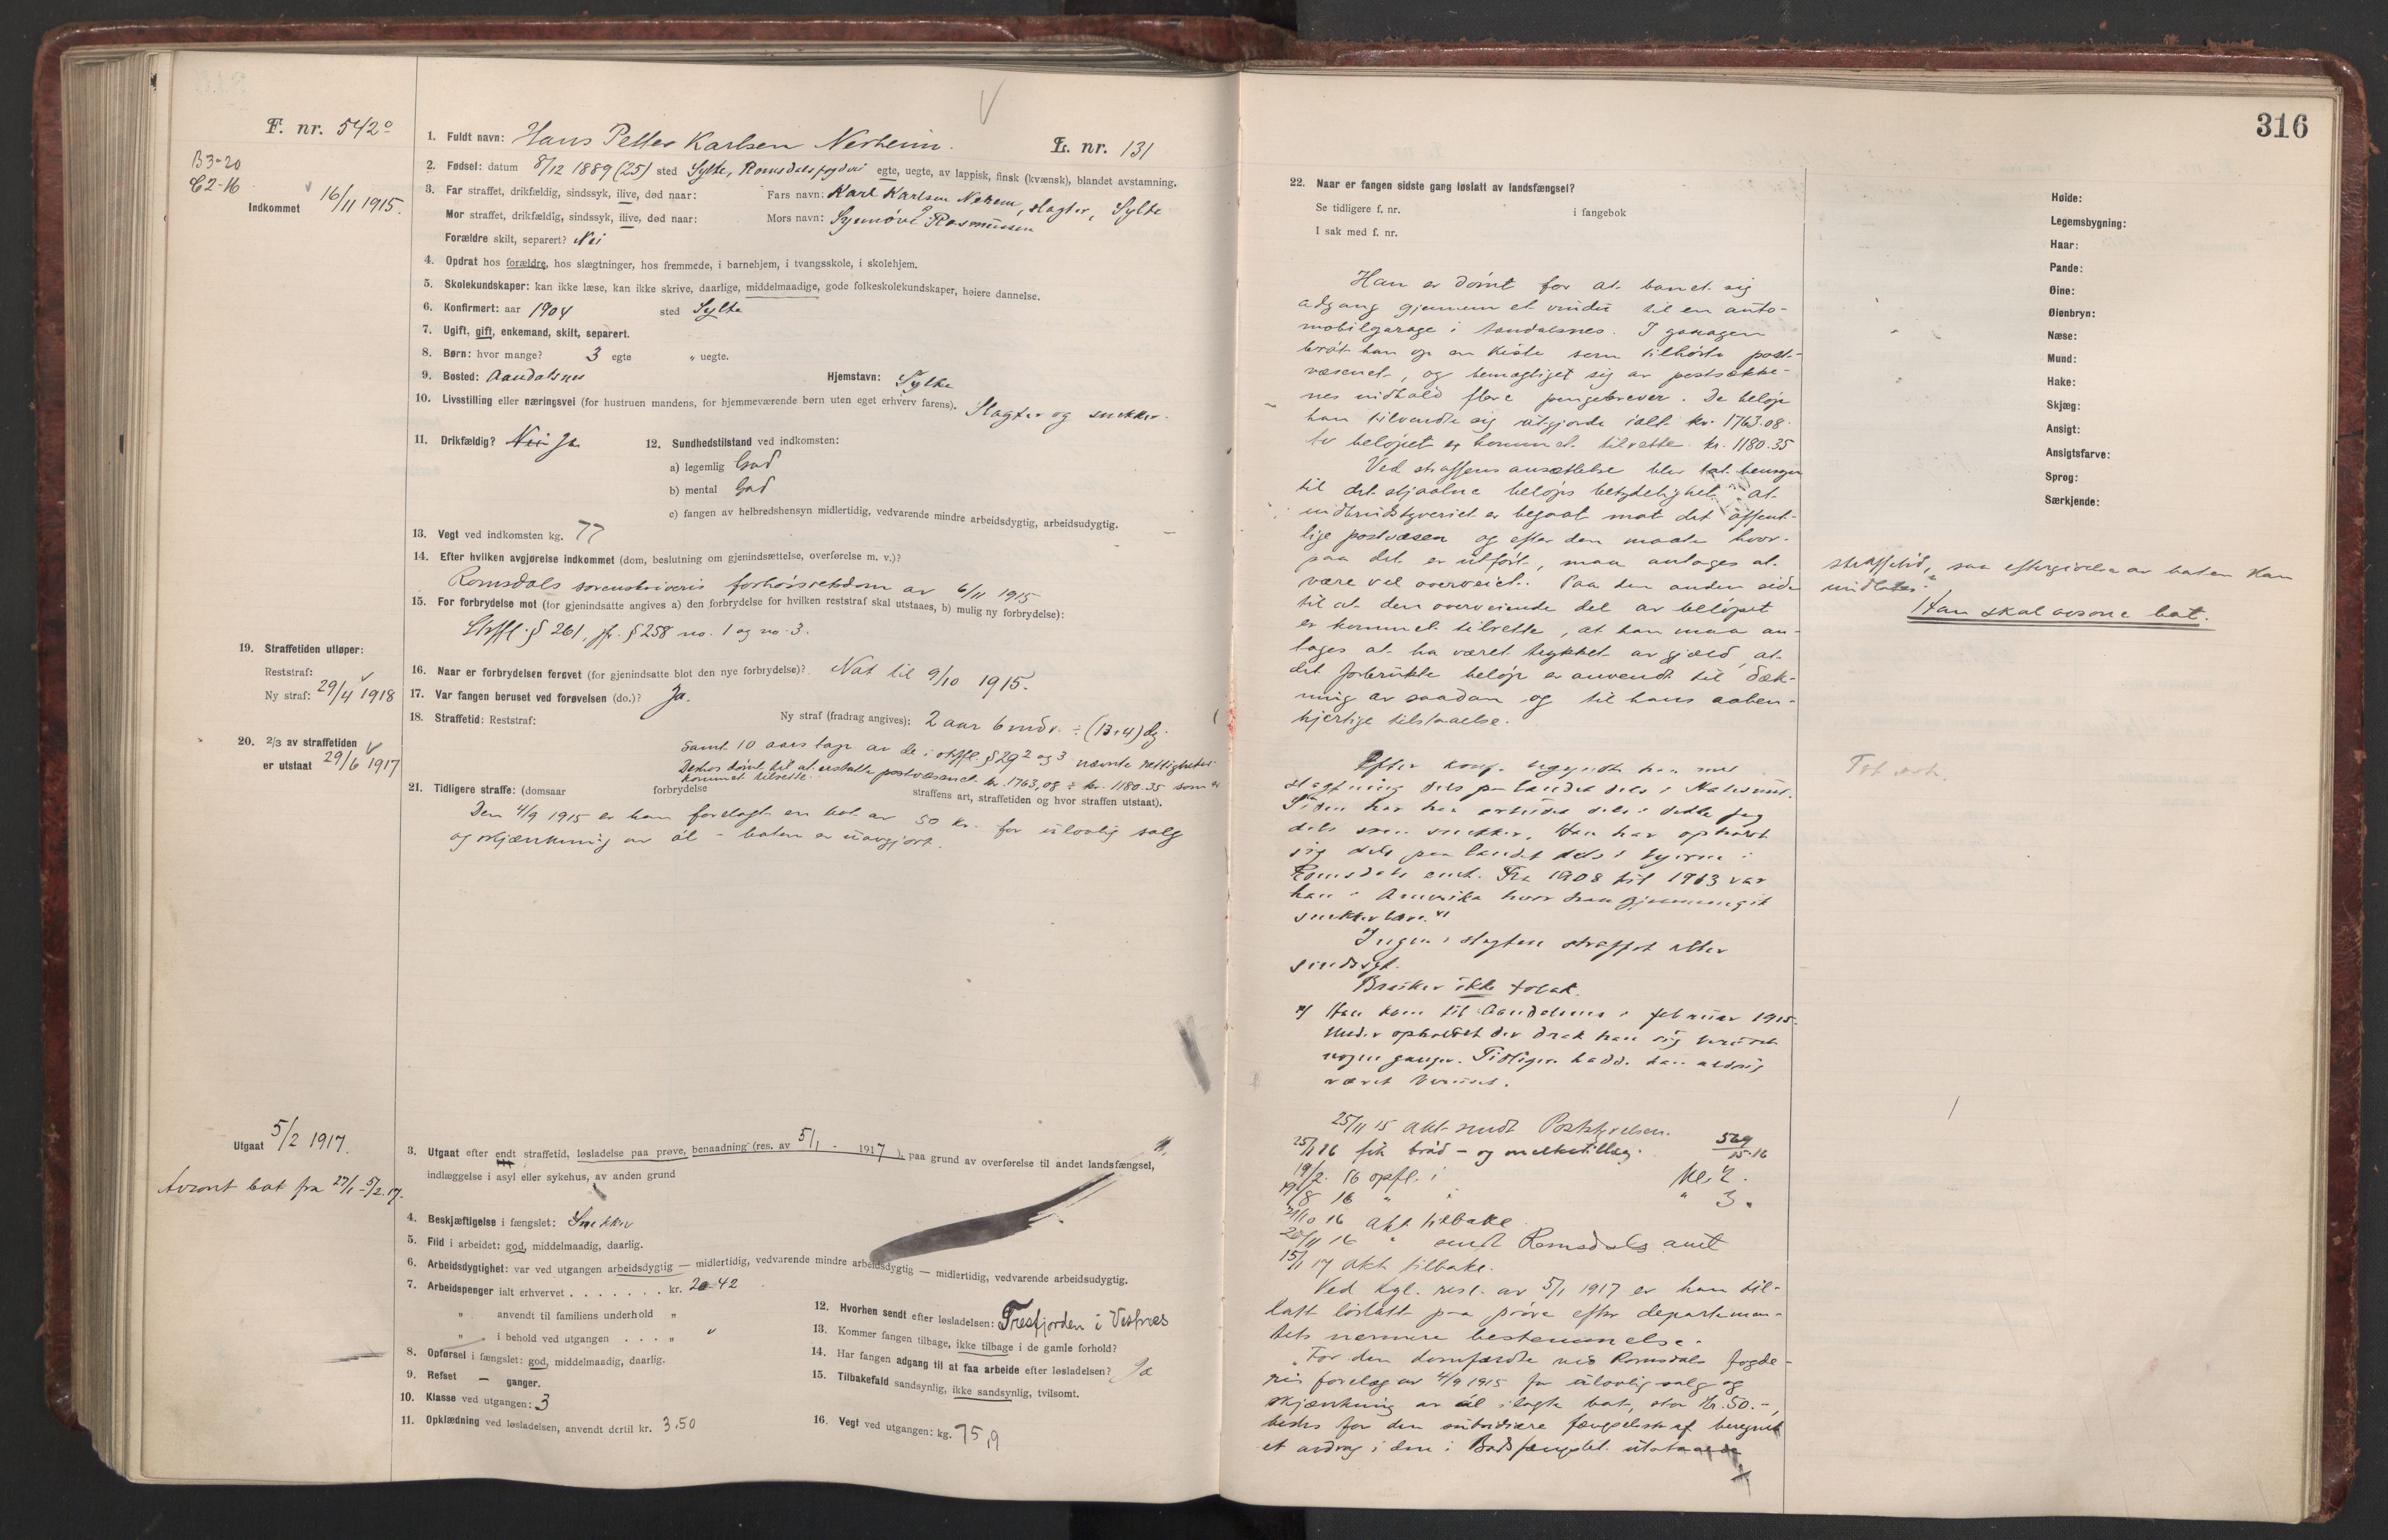 F. nr. 542°
B3-20
C2-16
Indkommet 16/11 1915.
1. Fuldt navn: Hans Petter Karlsen Nerheim. L. nr. 131
2. Fødsel: datum 8/12 1889 (25) sted Sylte, Romsdals fogderi egte, uegte, av lappisk, finsk (kvænsk), blandet avstamning.
3. Far straffet, drikfældig, sindssyk, ilive, død naar: Fars navn: Karl Karlsen Neheim, slagter, Sylte
Mor straffet, drikfældig, sindssyk, ilive, død naar: Mors navn: Synnøve Rasmussen
Forældre skilt, separert? Nei
4. Opdrat hos forældre, hos slægtninger, hos fremmede, i barnehjem, i tvangsskole, i skolehjem.
5. Skolekundskaper: kan ikke læse, kan ikke skrive, daarlige, middelmaadige, gode folkeskolekundskaper, høiere dannelse.
6. Konfirmert: aar 1904 sted Sylte
7. Ugift, gift, enkemand, skilt, separert.
8. Børn: hvor mange? 3 egte „ uegte.
9. Bosted: Aandalsnes Hjemstavn: Sylte
10. Livsstilling eller næringsvei (for hustruen mandens, for hjemmeværende børn uten eget erhverv farens). Slagter og snekker.
11. Drikfældig? Nei Ja 12. Sundhedstilstand ved indkomsten:
a) legemlig God
b) mental God
c) fangen av helbredshensyn midlertidig, vedvarende mindre arbeidsdygtig, arbeidsudygtig.
13. Vegt ved indkomsten kg. 77
14. Efter hvilken avgjørelse indkommet (dom, beslutning om gjenindsættelse, overførelse m. v.)?
Romsdals sorenskriveris forhørsretsdom av 6/11 1915
15. For forbrydelse mot (for gjenindsatte angives a) den forbrydelse for hvilken reststraf skal utstaaes, b) mulig ny forbrydelse):
Strffl. § 261, jfr. § 258 no. 1 og no. 3.
19. Straffetiden utløper:
Reststraf:
Ny straf: 29/4 1918
16. Naar er forbrydelsen forøvet (for gjenindsatte blot den nye forbrydelse)? Nat til 9/10 1915.
17. Var fangen beruset ved forøvelsen (do.)? Ja.
18. Straffetid: Reststraf: Ny straf (fradrag angives): 2 aar 6 mdr. ÷ (13+4) dg.
samt 10 aars tap av de i strffl. § 29 2 og 3 nævnte rettigheter
Derhos dømt til at erstatte postvæsenet kr. 1763,08 ÷ kr. 1180.35 som er
kommet tilrette.
20. 2/3 av straffetiden
er utstaat 29/6 1917
21. Tidligere straffe: (domsaar forbrydelse straffens art, straffetiden og hvor straffen utstaat).
Den 4/9 1915 er han forelagt en bot av 50 kr. for ulovlig salg
og skjænkning av øl - boten er uavgjort.
Utgaat 5/2 1917.
Avsont bot fra 27/1 - 5/2 17.
3. Utgaat efter endt straffetid, løsladelse paa prøve, benaadning (res. av 5/1 - 1917), paa grund av overførelse til andet landsfængsel,
indlæggelse i asyl eller sykehus, av anden grund
4. Beskjæftigelse i fængslet: Snekker
5. Flid i arbeidet: god, middelmaadig, daarlig.
6. Arbeidsdygtighet: var ved utgangen arbeidsdygtig — midlertidig, vedvarende mindre arbeidsdygtig — midlertidig, vedvarende arbeidsudygtig.
7. Arbeidspenger ialt erhvervet . . . . . . . kr. 20.42
„ anvendt til familiens underhold „
„ i behold ved utgangen . . . „ „
8. Opførsel i fængslet: god, middelmaadig, daarlig.
9. Refset — ganger.
10. Klasse ved utgangen: 3
11. Opklædning ved løsladelsen, anvendt dertil kr. 3.50
12. Hvorhen sendt efter løsladelsen: Tresfjorden i Vestnes
13. Kommer fangen tilbage, ikke tilbage i de gamle forhold?
14. Har fangen adgang til at faa arbeide efter løsladelsen? Ja
15. Tilbakefald sandsynlig, ikke sandsynlig, tvilsomt.
16. Vegt ved utgangen: kg. 75,9
316
22. Naar er fangen sidste gang løslatt av landsfængsel?
Se tidligere f. nr. i fangebok
I sak med f. nr.
Han er dømt for at banet sig
adgang gjennem et vindu til en auto-
mobilgarage i Aandalsnes. I garagen
brøt han op en kiste som tilhørte post-
væsenet, og bemægtiget sig av postsække-
nes indhold flere pengebrever. De beløp
han tilvendte sig utgjorde ialt kr. 1763.08.
Av beløpet er kommet tilrette kr. 1180.35
Ved straffens ansættelse blev tat hensyn
til det stjaalne beløps betydelighet, at
indbrudstyveriet er begaat mot det offent-
lige postvæsen og efter den maate hvor-
paa det er utført, maa antages at
være vel overveiet. Paa den anden side
til at den overveiende del av beløpet
er kommet tilrette, at han maa an-
tages at ha været trykket av gjæld, at
det forbrukte beløp er anvendt til dæk-
ning av saadan og til hans aaben-
hjertige tilstaaelse.
Efter konf. begyndte han med
slagtning dels paa landet dels i Aalesund.
Siden har han arbeidet dels i dette fag
dels som snekker. Han har opholdt
sig dels paa landet dels i byerne i
Romsdals amt. Fra 1908 til 1913 var
han i Amerika hvor han gjennemgik
snekkerlære. x)
Ingen i slegten straffet eller
sindssyk.
Bruker ikke tobak.
x) Han kom til Aandalsnes i februar 1915.
Under opholdet der drak han sig beruset
nogen ganger. Tidligere hadde han aldrig
været beruset.
25/11 15 akt sendt Poststyrelsen. 529/15-16
25/1 16 fik brød - og melketillæg.
19/2 16 opfl. i kl. 2.
19/8 16 „ i „ 3.
21/10 16 akt tilbake
20/11 16 „ sendt Romsdals amt
15/1 17 akt tilbake.
Ved kgl. resl. av 5/1 1917 er han til-
latt løslatt paa prøve efter departemen-
tets nærmere bestemmelse.
„For den domfældte ved Romsdals fogde-
ris forelæg av 4/9 1915 for ulovlig salg og
skjænkning av øl ilagte bot, stor kr. 50.-,
bedes for den subsidiære fængselsstraf beregnet
et avdrag i den i Bodsfængslet utstaaede
Høide:
Legemsbygning:
Haar:
Pande:
Øine:
Øienbryn:
Næse:
Mund:
Hake:
Skjæg:
Ansigt:
Ansigtsfarve:
Sprog:
Særkjende:
straffetid, saa eftergivelse av boten kan
undlates."
Han skal avsone bot.